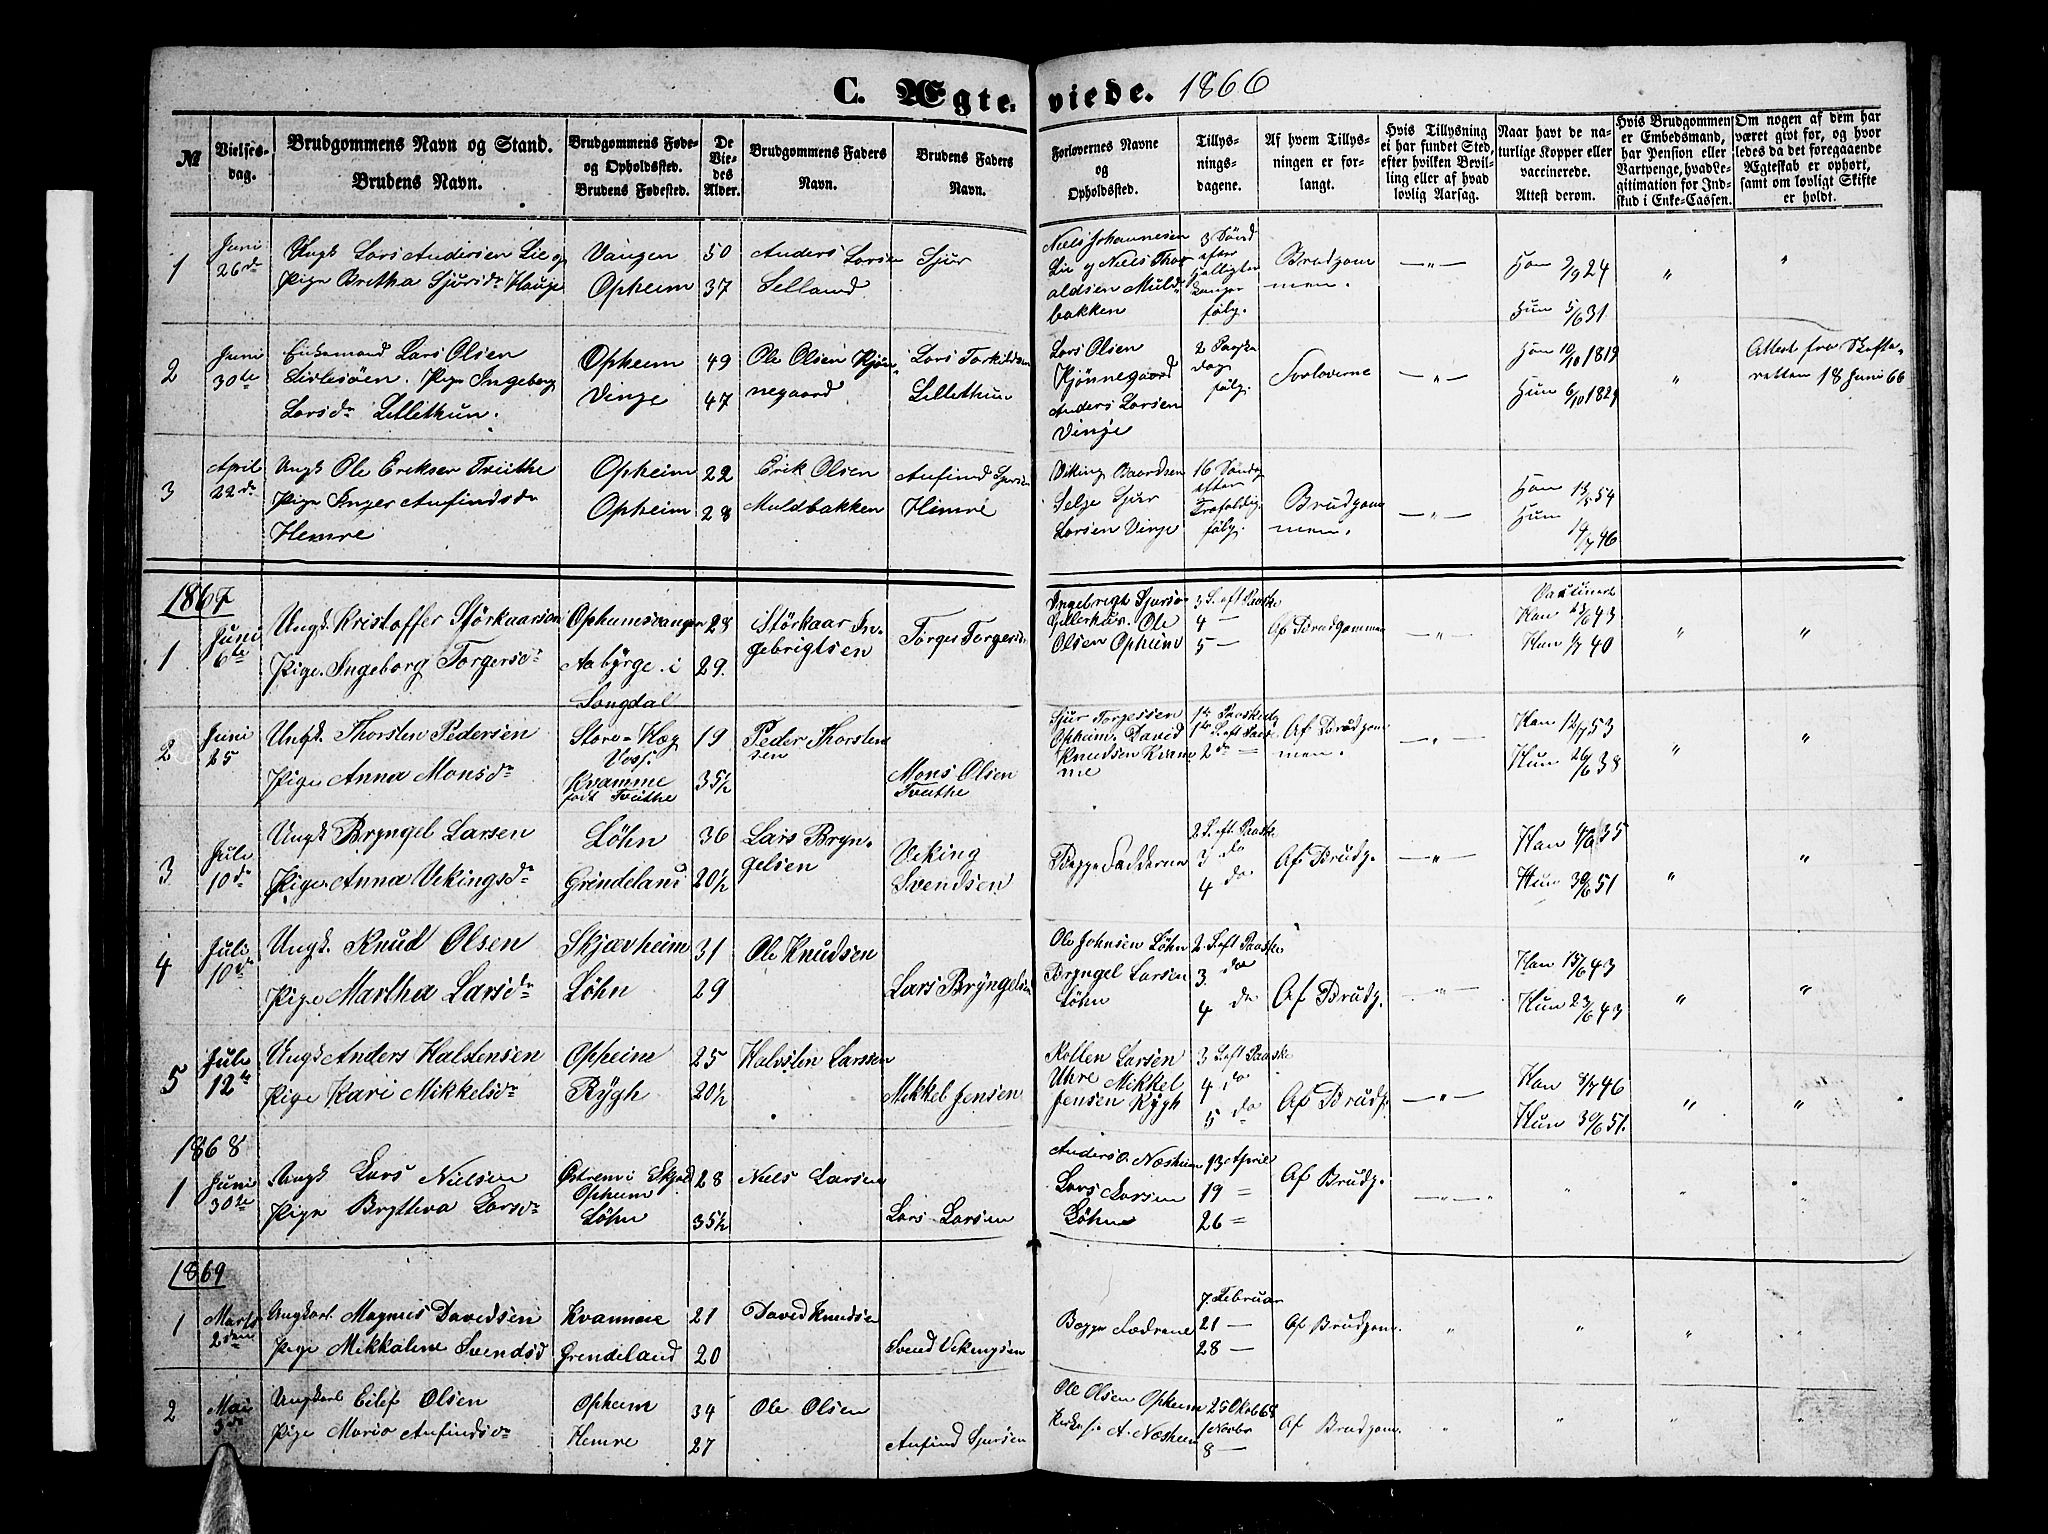 C. Ægteviede. 1866
№
Vielses-
dag.
Brudgommens Navn og Stand.
Brudens Navn.
Brudgommens Føde-
og Opholdssted.
Brudens Fødested.
De
Vie-
des
Alder.
Brudgommens Faders
Navn.
Brudens Faders
Navn.
Forlovernes Navne
og
Opholdssted.
Tillys-
nings-
dagene.
Af hvem Tillys-
ningen er for-
langt.
Hvis Tillysning
ei har fundet Sted,
efter hvilken Bevil-
ling eller af hvad
lovlig Aarsag.
Naar havt de na-
turlige Kopper eller
vaccinerede.
Attest derom.
Hvis Brudgommen
er Embedsmand,
har Pension eller
Vartpenge, hvad Le-
gitimation for Ind-
skud i Enke-Cassen.
Om nogen af dem har
været givt for, og hvor
ledes da det foregaaende
Ægteskab er ophørt,
samt om lovligt Skifte
er holdt.
1
Juni
26de
Ungk Lars Andersen Lie og
Pige Bretha Sjursdr Hauge
Vangen
Opheim
50
37
Anders Larsen
Lelland
Sjur
Niels Johannesen
Lie og Niels Thor
aldsen Muld-
bakken
3 Sønd
efter
følg.
Brudgom
men.
—〃—
Han 9/9 24
Hun 5/6 31
〃
〃
2
Juni
30te
Enkemand Lars Olsen
Pige Ingeborg
Larsdr Lillethun.
Opheim
Vinje
49
47
Ole Olsen Kjøn-
negaard
Lars Torkildsen
Lillethun
Lars Olsen
Kjønnegaard
Anders Larsen
Vinje
2 Paaske
dag
følg.
Forloverne
—〃—
Han 10/10 1819
Hun 6/10 1829
〃
Attest fra Skifte-
retten 18 Juni 66
3
April
22de
Ungk Ole Eriksen Tvüthe
Pige Inger Anfindsdr
Hemre
Opheim
Opheim
22
28
Erik Olsen
Muldbakken
Anfind Sjursen
Himre
Viking Baardsen
Selje Sjur
Larsen Vinje
16 Søndag
efter
Trefoldig.
følg.
Brudgom
men.
—〃—
Han 54
Hun
14/7 46
1867
1
Juni
6te
Ungk. Kristoffer Störkaarson
Pige Ingeborg Torgersdr
Ophumsvangen
Aabyrge i
Songdal
28
29.
Störkaar In-
gebrigtsen
Torges Torgers
Ingebrigt Sjurso
Ole
Olsen Opheim
3 S. eft Paaske
4 —
5 —
Af Brudgommen
—〃—
Vaccineret
Han 43
Han 40
〃
〃
2
Juni
25
Ungk. Thorsten Pedersen
Pige Anna Monsdr
Store-Kleg
Voss.
Kvamme
født Tvüthe
19
35½
Peder Thorsten
sen
Mons Olsen
Tvüthe
Sjur Torgessen
Opheim. David
Knudsen Kvam
me
1ste Paaskedg
1ste S. eft Paask
2de =
Af Brudgom
men.
—〃—
Han 12/7 53
Hun 26/6 38
〃
〃
3
Juli
10de
Ungk Bryngel Larsen
Pige Anna Vekingsdr
Löhn
Grendeland
36
20½
Lars Bryn-
gelsen
Veking
Svendsen
Begge Fædrene
2 S. eft. Paaske
3 do
4 do
Af Brudg.
—〃—
Han 35
Hun 30/6 51
〃
〃
4
Juli
10de
Ungk. Knud Olsen
Pige Martha Larsdr
Skjævheim
Löhn
31
29
Ole Knudsen
Lars Bryngelsen
Ole Johnsen Löhn
Bryngel Larsen
Löhn
2. S. eft Paaske
3. do
4 do
Af Brudg.
—〃—
Han 15/6 43
Hun 23/6 43
〃
〃
5
Juli
12te
Ungk Anders Halstensen
Pige Kari Mikkelsdr
Opheim
Rygh
25
20½
Halvsten Larsen
Mikkel Jensen
Larsen
Uhre Mikkel
Jensen Rygh
3 S. eft Paaske
4 do
5 do
Af Brudg.
—〃—
Han 46
Hun 30/6 51.
〃
〃
1868
1
Juni
30te
Ungk Lars Nielsen
Pige Bryttva Larsdr
Østremi Skjold
Opheim
Löhn
28
35½
Niels Larsen
Lars Larsen
Anders O. Næsheim
Lars Larsen
Løhn
13 April
19 =
26 =
Af Brudg.
—〃—
〃
〃
〃
1869
1
Marts
2den
Ungkarl Magnus Davidsen
Pige Mikkaline Svendsd
Kvamme
Grendeland
21
20
David Knudsen
Svend Vekingsen
Begge Fædrene
7. Februar
21 —
28 —
Af Brudgom.
〃
〃
〃
〃
2
Mai
3de
Ungkarl Eilef Olsen
Pige Maria Anfindsdr
Opheim
Hemre
34
27
Ole Olsen
Anfind Sjursen
Ole Olsen Opheim
Kirkes. A. Næsheim
25 Oktob 68
1 Novbr
8 —
Af Brudgom.
〃
〃
〃
〃